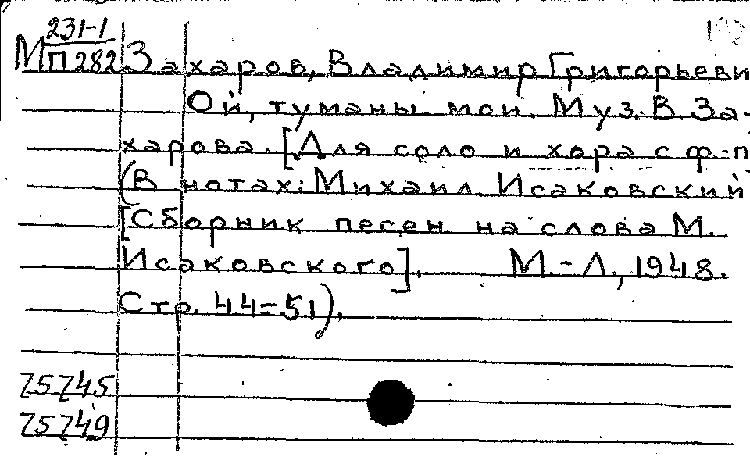 231-1
М П 282 Захаров, Владимир Григорьеви
Ой, туманы мои. Муз. В. За-
харова. [Для соло и хора с ф-п
(В нотах: Михаил Исаковский
[Сборник песен на слова М.
Исаковского]. М.-Л., 1948.
Стр. 44-51).
75745
75749